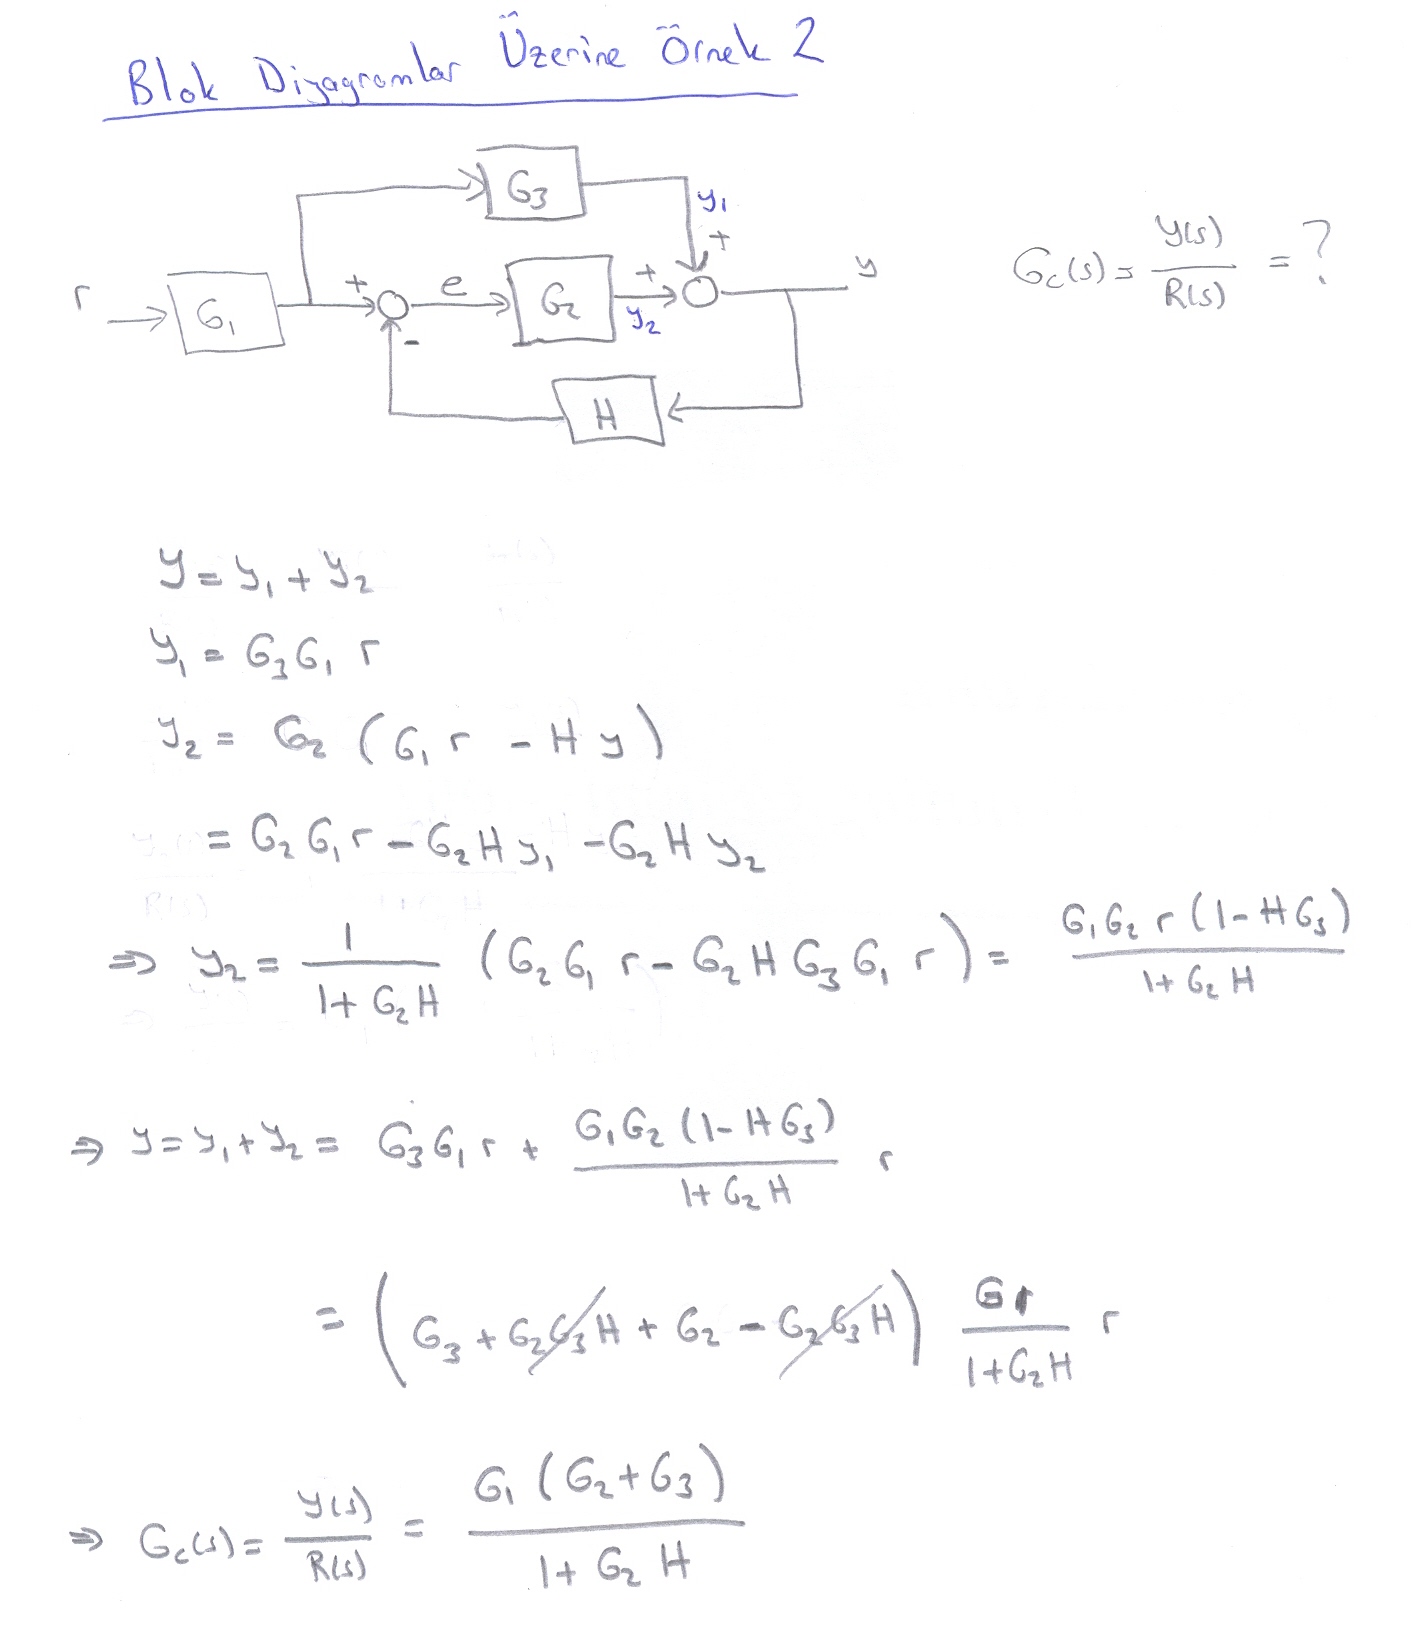 Blok Diyagramlar Üzerine Örnek 2
G3
y1
+
r
G1
+
e
G2
+
y2
y
-
H
Gc(s) = Y(s)/R(s) = ?
y = y1 + y2
y1 = G3G1 r
y2 = G2 (G1 r - H y)
= G2 G1 r - G2 H y1 - G2 H y2
⇒ y2 = 1/(1 + G2H) (G2G1 r - G2 H G3 G1 r) = G1G2 r (1 - HG3)/(1 + G2 H)
⇒ y = y1 + y2 = G3G1 r + G1G2 (1 - HG3)/(1 + G2 H) r
= (G3 + G2G3H + G2 - G2G3H) G1/(1 + G2H) r
⇒ Gc(s) = Y(s)/R(s) = G1 (G2 + G3)/(1 + G2 H)